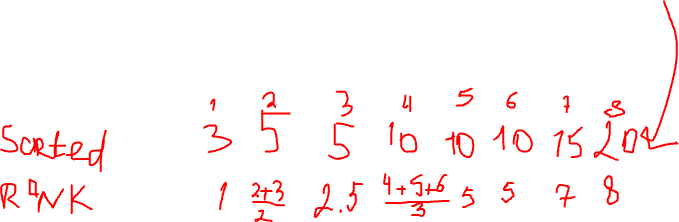 1 2 3 4 5 6 7 8
Sorted 3 5 5 10 10 10 15 20
RANK 1 2+3/2 2.5 4+5+6/3 5 5 7 8